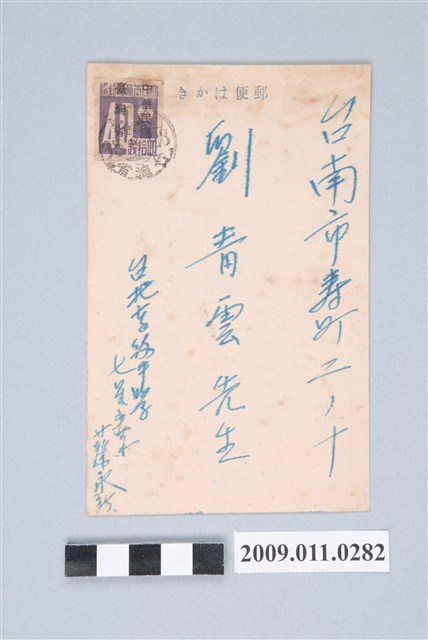 郵便はかき
中華民國
臺灣省
40
台南市壽町二ノ十
劉青雲先生
台北
七星
2009.011.0282